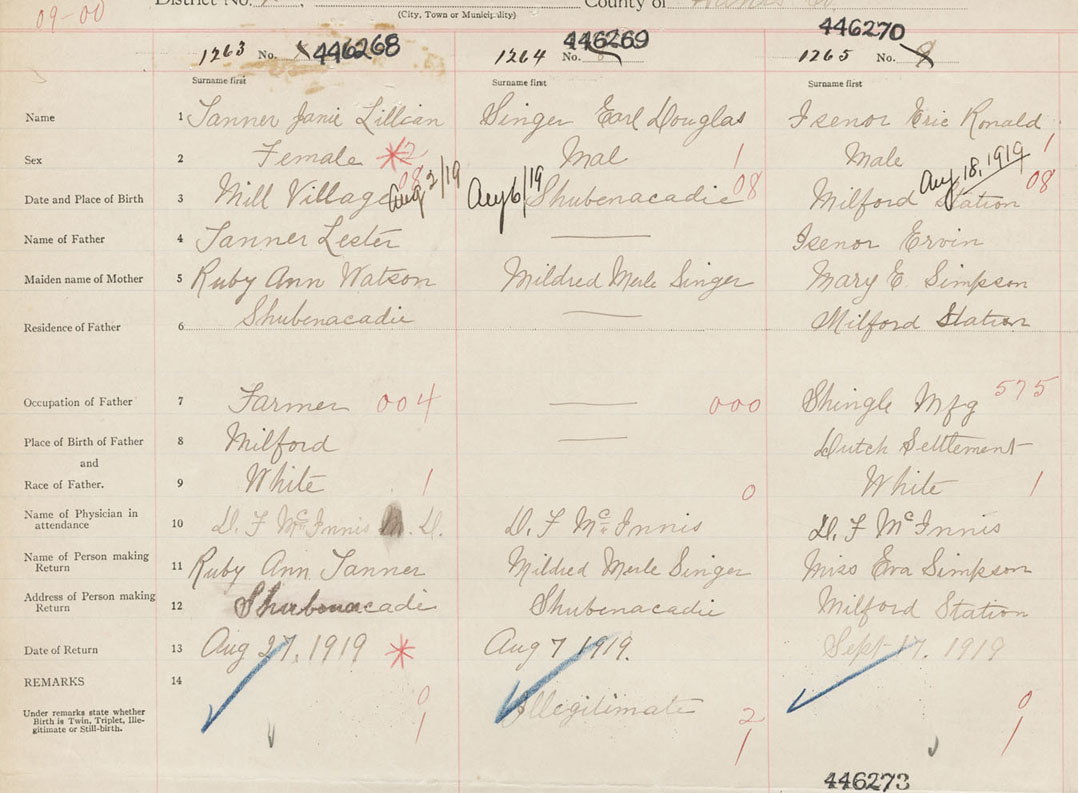 09-00
District No.
County of
(City, Town or Municipality)
1263 No. 446268
1264 No. 446269
1265 No. 446270
Surname first
Surname first
Surname first
Name 1 Tanner Janie Lillian
Singer Earl Douglas
Isenor Eric Ronald
Sex 2 Female 2
Mal 1
Male 1
Date and Place of Birth 3 Mill Village 08 Aug 2/19
Aug 6/19 Shubenacadie 08
Milford Station Aug 18, 1919 08
Name of Father 4 Tanner Lester
Isenor Ervin
Maiden name of Mother 5 Ruby Ann Watson
Mildred Merle Singer
Mary E. Simpson
Residence of Father 6 Shubenacadie
Milford Station
Occupation of Father 7 Farmer 004
000
Shingle Mfg 575
Place of Birth of Father 8 Milford
Dutch Settlement
and
Race of Father. 9 White 1
0
White 1
Name of Physician in attendance 10 D. F McInnis M. D.
D. F McInnis
D. F McInnis
Name of Person making Return 11 Ruby Ann Tanner
Mildred Merle Singer
Miss Eva Simpson
Address of Person making Return 12 Shubenacadie
Shubenacadie
Milford Station
Date of Return 13 Aug 27, 1919
Aug 7 1919.
Sept 17. 1919
REMARKS 14
Under remarks state whether
Birth is Twin, Triplet, Ille-
gitimate or Still-birth.
0
1
Illegitimate 2
1
0
1
446273